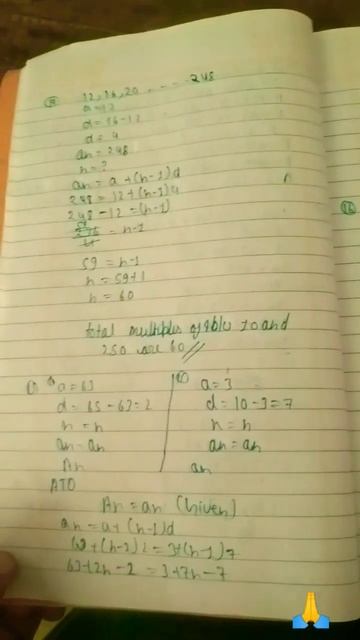 12, 16, 20 ..... 248
a = 12
d = 16 - 12
d = 4
an = 248
n = ?
an = a + (n-1)d
248 = 12 + (n-1)4
248 - 12 = (n-1)
236/4 = n-1
59 = n-1
n = 59+1
n = 60
total multiples of 4 b/w 10 and
250 are 60 //
a = 63
d = 65 - 63 = 2
n = n
an = an
An
a = 3
d = 10 - 3 = 7
n = n
an = an
an
ATQ
An = an (Given)
an = a + (n-1)d
63 + (n-1)2 = 3 + (n-1)7
63 + 2n - 2 = 3 + 7n - 7